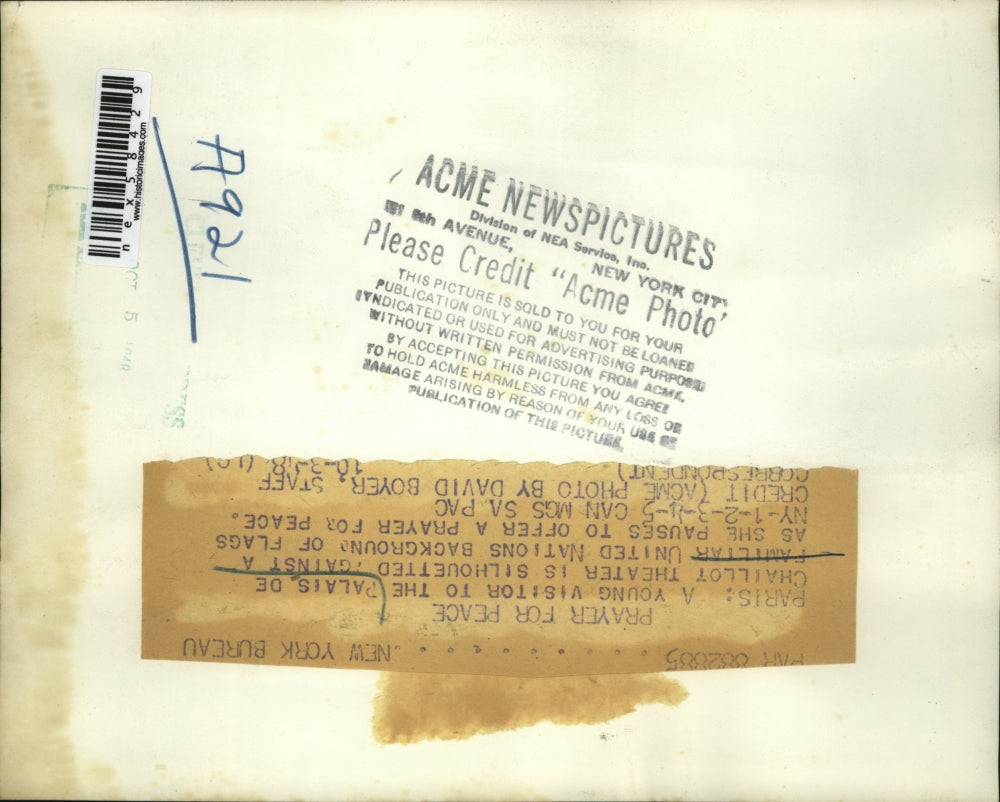 ACME NEWSPICTURES
Division of NEA Service, Inc.
8th AVENUE, NEW YORK CITY
Please Credit "Acme Photo"
THIS PICTURE IS SOLD TO YOU FOR YOUR
PUBLICATION ONLY AND MUST NOT BE LOANED
SYNDICATED OR USED FOR ADVERTISING PURPOSES
WITHOUT WRITTEN PERMISSION FROM ACME.
BY ACCEPTING THIS PICTURE YOU AGREE
TO HOLD ACME HARMLESS FROM ANY LOSS OR
DAMAGE ARISING BY REASON OF YOUR USE OR
PUBLICATION OF THIS PICTURE
nex58429
www.historicimages.com
A921
OCT 5
PAR 882885 . . . . . . . . . . NEW YORK BUREAU
PRAYER FOR PEACE
PARIS: A YOUNG VISITOR TO THE PALAIS DE
CHAILLOT THEATER IS SILHOUETTED AGAINST A
FAMILIAR UNITED NATIONS BACKGROUND OF FLAGS
AS SHE PAUSES TO OFFER A PRAYER FOR PEACE.
NY-1-2-3-4-5 CAN MGS SA PAC
CREDIT (ACME PHOTO BY DAVID BOYER, STAFF
CORRESPONDENT) 10-3-48